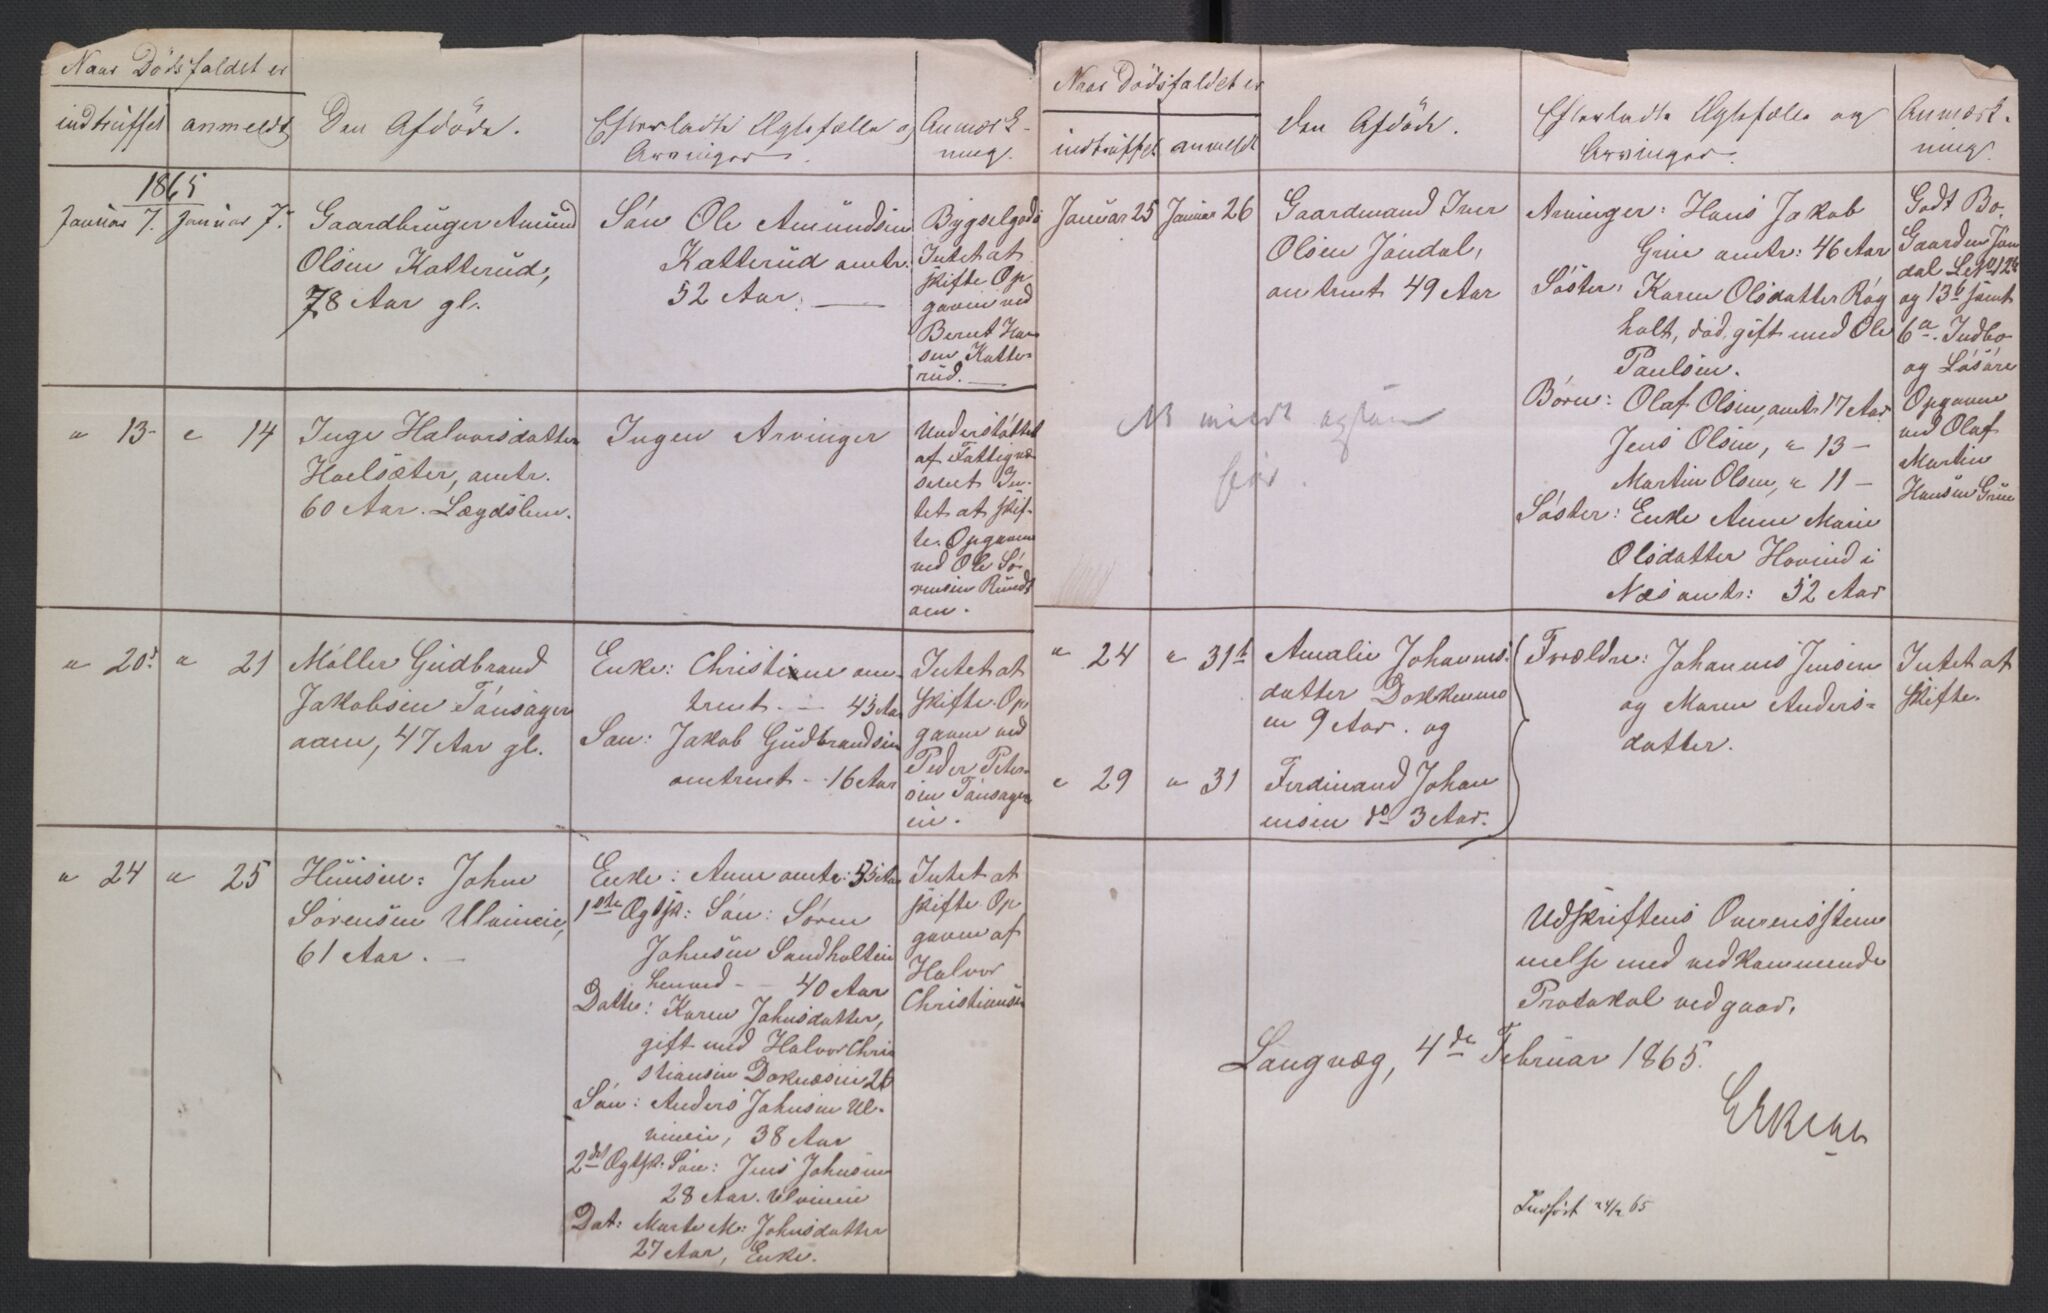 Naar Dödsfaldet er
indtruffet
anmeldt
Den Afdöde.
Efterladte Ægtefælle og
Arvinger.
Anmærk-
ning.
1865
Januar 7.
Januar 7.
Gaardbruger Amund
Olsen Katterud,
78 Aar gl.
Sön Ole Amundsen
Katterud omtr.
52 Aar.
Bygselgods
Intet at
skifte Op
gaven ved
Bernt Han
sen Katte-
rud.
" 13
" 14
Inge Halvorsdatter
Hoelsæter, omtr.
60 Aar. Lægdslem.
Ingen Arvinger
Understöttet
af Fattigvæ
senet In-
tet at skif-
te. Opgaven
ved Ole Sö-
rensen Rund
" 20
" 21
Möller Gudbrand
Jakobsen Tönsager
aaen, 47 Aar gl.
Enke: Christine om-
trent - 43 Aar
Sön: Jakob Gudbrandsen
omtrent - 16 Aar
Intet at
skifte. Op
gaven ved
Peder Peter-
sen Tönsager
en.
" 24
" 25
Huusm: John
Sörensen Ulvineie,
61 Aar.
Enke: Anne omtr: 55 Aar
1ste Ægtsk: Sön: Sören
Johnsen Sandholteie
40 Aar
Datter: Karen Johnsdatter,
gift med Halvor Chri
stiansen Doknæseie 26
Sön: Anders Johnsen Ul-
vineie, 38 Aar
2det Ægtsk. Sön: Jens Johnsen
28 Aar. Ulvineie
Dat: Marte M: Johnsdatter
27 Aar, Enke.
Intet at
skifte Op
gaven af
Halvor
Christiansen
Naar Dödsfaldet er
indtruffet
anmeldt
Den Afdöde.
Efterladte Ægtefælle og
Arvinger.
Anmærk-
ning.
Januar 25
Januar 26
Gaardmand Iver
Olsen Jöndal,
omtrent 49 Aar
Arvinger: Hans Jakob
Grue omtr: 46 Aar
Söster: Karen Olsdatter Rög
holt, död, gift med Ole
Paulsen.
Börn: Olaf Olsen, omtr 17 Aar
Jens Olsen, " 13 -
Martin Olsen, " 11 -
Söster: Enke Anne Marie
Olsdatter Hovind i
Næs omtr: 52 Aar
Godt Bo.
Gaarden Jön
dal L No 12
og 13b samt
6a. Indbo
og Lösöre
Opgaven
ved Olaf
Martin
Hansen Grue
" 24
" 31t
Amalie Johannes-
datter Dokkenmo
en 9 Aar. og
" 29
" 31
Ferdinand Johan
nesen do 3 Aar.
Forældre: Johannes Jensen
og Maren Anders-
datter.
Intet at
skifte.
Udskriftens Overensstem
melse med vedkommende
Protokol vedgaar.
Langvæg, 4de Februar 1865.
Indfört 24/2 65